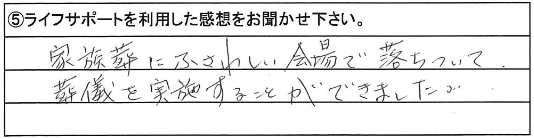 ⑤ライフサポートを利用した感想をお聞かせ下さい。
家族葬にふさわしい会場で落ちついて、
葬儀を実施することができました。